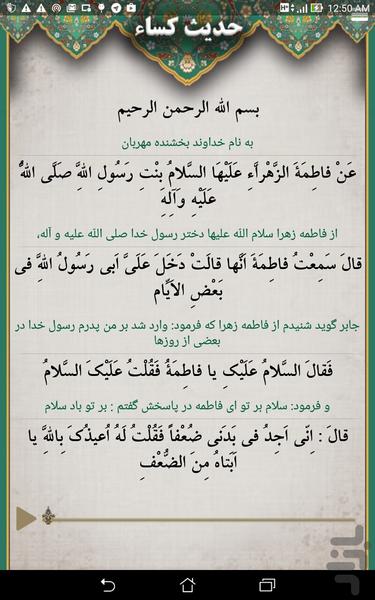 12:50 AM
حدیث کساء
بسم الله الرحمن الرحیم
به نام خداوند بخشنده مهربان
عَنْ فاطِمَةَ الزَّهْراَّءِ عَلَیْهَا السَّلامُ بِنْتِ رَسُولِ اللَّهِ صَلَّی اللَّهُ
عَلَیْهِ وَآلِهِ
از فاطمه زهرا سلام الله علیها دختر رسول خدا صلی الله علیه و آله،
قالَ سَمِعْتُ فاطِمَةَ اَنَّها قالَتْ دَخَلَ عَلَیَّ اَبی رَسُولُ اللَّهِ فی
بَعْضِ الاَیَّامِ
جابر گوید شنیدم از فاطمه زهرا که فرمود: وارد شد بر من پدرم رسول خدا در
بعضی از روزها
فَقالَ السَّلامُ عَلَیْکِ یا فاطِمَةُ فَقُلْتُ عَلَیْکَ السَّلامُ
و فرمود: سلام بر تو ای فاطمه در پاسخش گفتم : بر تو باد سلام
قالَ : اِنّی اَجِدُ فی بَدَنی ضُعْفاً فَقُلْتُ لَهُ اُعیذُکَ بِاللَّهِ یا
اَبَتاهُ مِنَ الضُّعْفِ
بازار